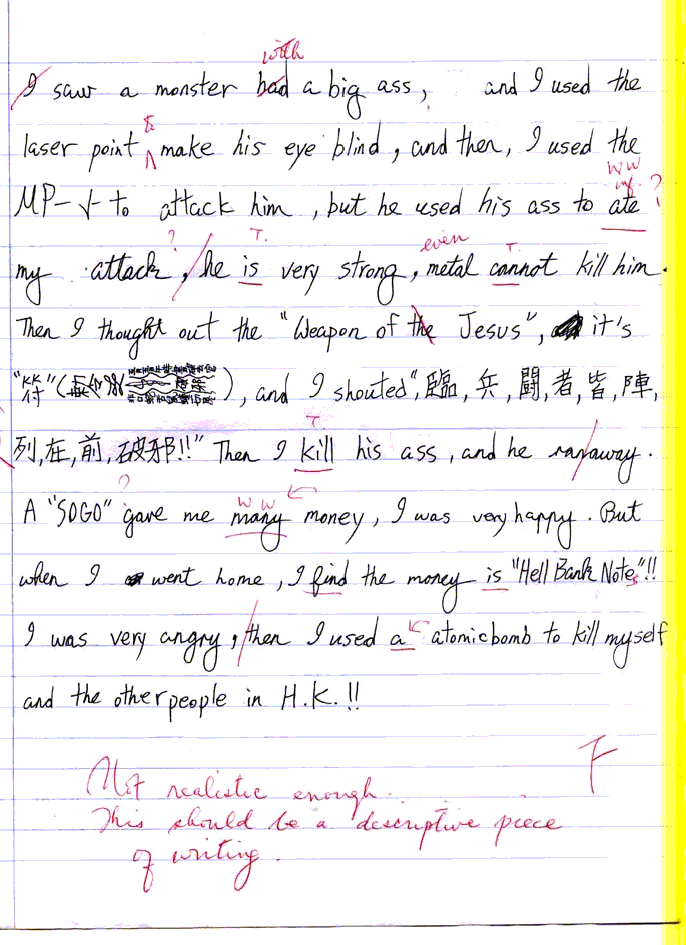 with
I saw a monster had a big ass, and I used the
to
laser point make his eye blind, and then, I used the
WW
inf. ?
MP-√- to attack him, but he used his ass to ate
? T. even T.
my attack, he is very strong, metal cannot kill him.
Then I thought out the "Weapon of the Jesus", it's
" " ( ), and I shouted", 臨, 兵, 鬪, 者, 皆, 陣,
T.
列, 在, 前, 破邪!!" Then I kill his ass, and he ran away.
? WW
A "SOGO" gave me many money, I was very happy. But
when I went home, I find the money is "Hell Bank Notes"!!
I was very angry, then I used a atomic bomb to kill myself
and the other people in H.K.!!
F
Not realistic enough.
This should be a descriptive piece
of writing.